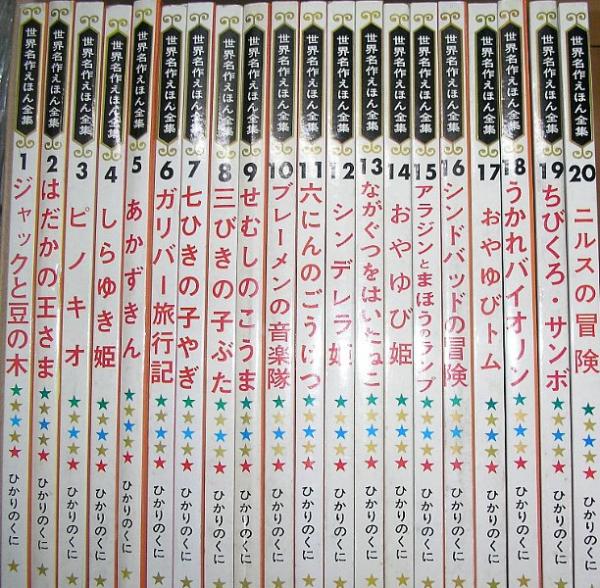 世界名作えほん全集 1 ジャックと豆の木 ひかりのくに
世界名作えほん全集 2 はだかの王さま ひかりのくに
世界名作えほん全集 3 ピノキオ ひかりのくに
世界名作えほん全集 4 しらゆき姫 ひかりのくに
世界名作えほん全集 5 あかずきん ひかりのくに
世界名作えほん全集 6 ガリバー旅行記 ひかりのくに
世界名作えほん全集 7 七ひきの子やぎ ひかりのくに
世界名作えほん全集 8 三びきの子ぶた ひかりのくに
世界名作えほん全集 9 せむしのこうま ひかりのくに
世界名作えほん全集 10 ブレーメンの音楽隊 ひかりのくに
世界名作えほん全集 11 六にんのごうけつ ひかりのくに
世界名作えほん全集 12 シンデレラ姫 ひかりのくに
世界名作えほん全集 13 ながぐつをはいたねこ ひかりのくに
世界名作えほん全集 14 おやゆび姫 ひかりのくに
世界名作えほん全集 15 アラジンとまほうのランプ ひかりのくに
世界名作えほん全集 16 シンドバッドの冒険 ひかりのくに
世界名作えほん全集 17 おやゆびトム ひかりのくに
世界名作えほん全集 18 うかれバイオリン ひかりのくに
世界名作えほん全集 19 ちびくろ・サンボ ひかりのくに
世界名作えほん全集 20 ニルスの冒険 ひかりのくに